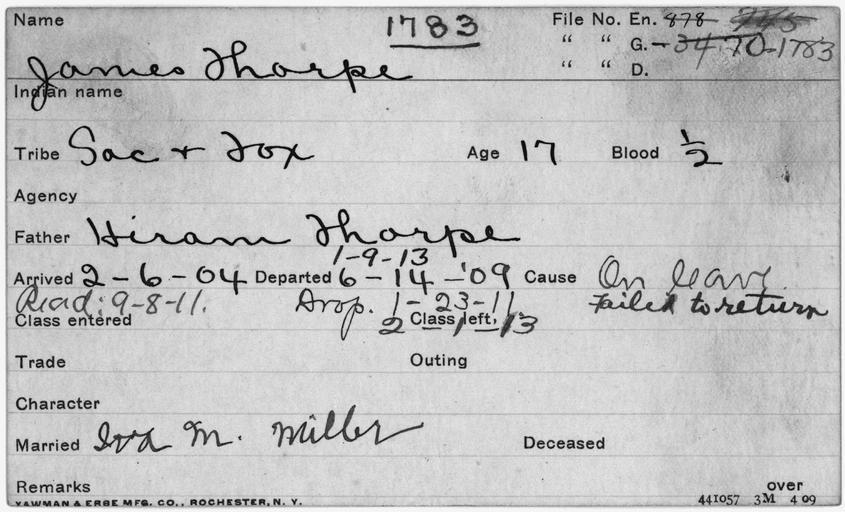 Name 1783 File No. En. 878 775
" " G. - 3470-1783
James Thorpe " " D.
Indian name
Tribe Sac + Fox Age 17 Blood 1/2
Agency
Father Hiram Thorpe
1-9-13
Arrived 2-6-04 Departed 6-14-'09 Cause On leave.
Read: 9-8-11. Drop. 1-23-11 Failed to return
Class entered 2 Class left, 13
Trade Outing
Character
Married Iva M. Miller Deceased
Remarks over
YAWMAN & ERBE MFG. CO., ROCHESTER, N. Y. 441057 3M 4 09